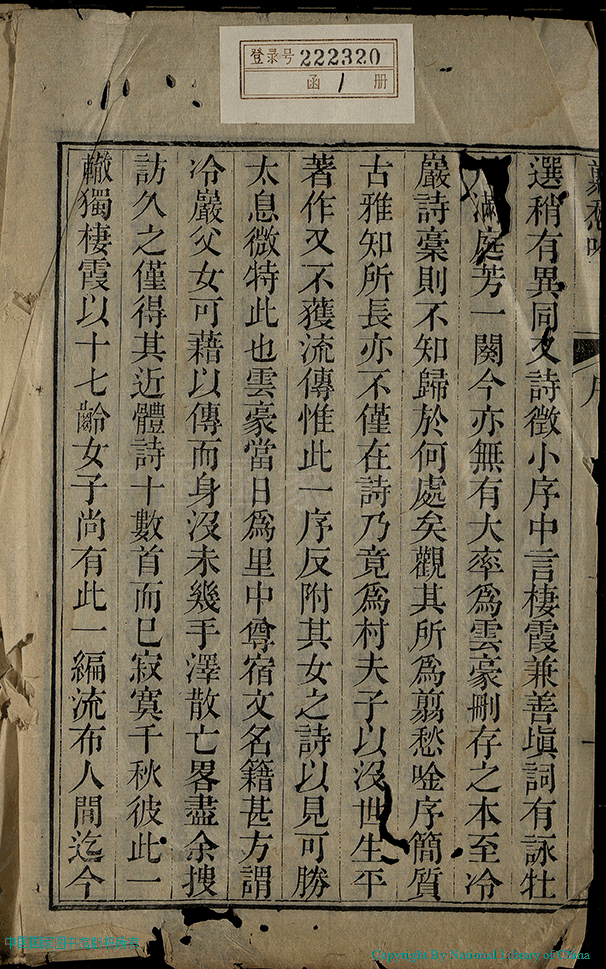 登录号 222320
函 1 册
選稍有異同又詩徵小序中言棲霞兼善塡詞有詠牡
滿庭芳一闋今亦無有大率爲雲豪刪存之本至冷
巖詩稾則不知歸於何處矣觀其所爲翦愁唫序簡質
古雅知所長亦不僅在詩乃竟爲村夫子以沒世生平
著作又不獲流傳惟此一序反附其女之詩以見可勝
太息微特此也雲豪當日爲里中耆宿文名籍甚方謂
冷巖父女可藉以傳而身沒未幾手澤散亡畧盡余搜
訪久之僅得其近體詩十數首而已寂寞千秋彼此一
轍獨棲霞以十七齡女子尚有此一編流布人間迄今
Copyright By National Library of China